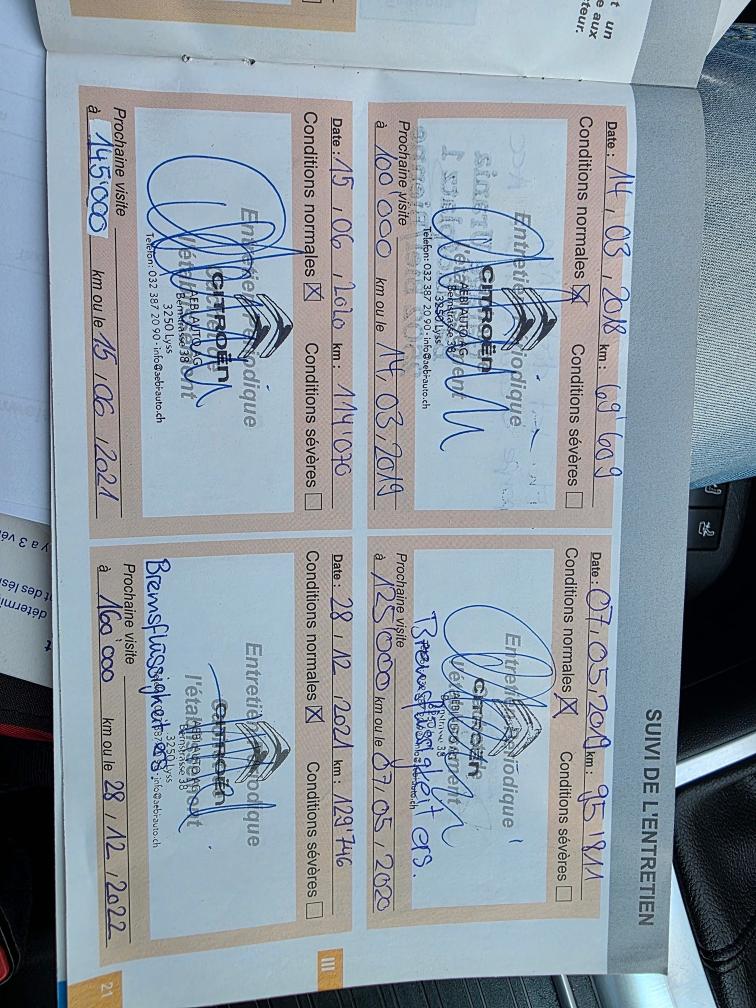 SUIVI DE L'ENTRETIEN
Date : 14, 03, 2018 km : 69'609
Conditions normales ☒ Conditions sévères ☐
Entretien Périodique
CITROËN
AEBI AUTO AG
Bernstrasse 38
3250 Lyss
Telefon: 032 387 20 90 · info@aebiauto.ch
Prochaine visite
à 100'000 km ou le 14, 03, 2019
Date : 07, 05, 2019 km : 95'811
Conditions normales ☒ Conditions sévères ☐
Entretien Périodique
CITROËN
Bremsflüssigkeit ers.
Prochaine visite
à 125'000 km ou le 07, 05, 2020
Date : 15, 06, 2020 km : 114'070
Conditions normales ☒ Conditions sévères ☐
Entretien Périodique
CITROËN
AEBI AUTO AG
Bernstrasse 38
3250 Lyss
Telefon: 032 387 20 90 · info@aebiauto.ch
Prochaine visite
à 145'000 km ou le 15, 06, 2021
Date : 28, 12, 2021 km : 129'746
Conditions normales ☒ Conditions sévères ☐
Entretien Périodique
CITROËN
AEBI AUTO AG
Bernstrasse 38
3250 Lyss
info@aebiauto.ch
Bremsflüssigkeit ers.
Prochaine visite
à 160'000 km ou le 28, 12, 2022
III
21